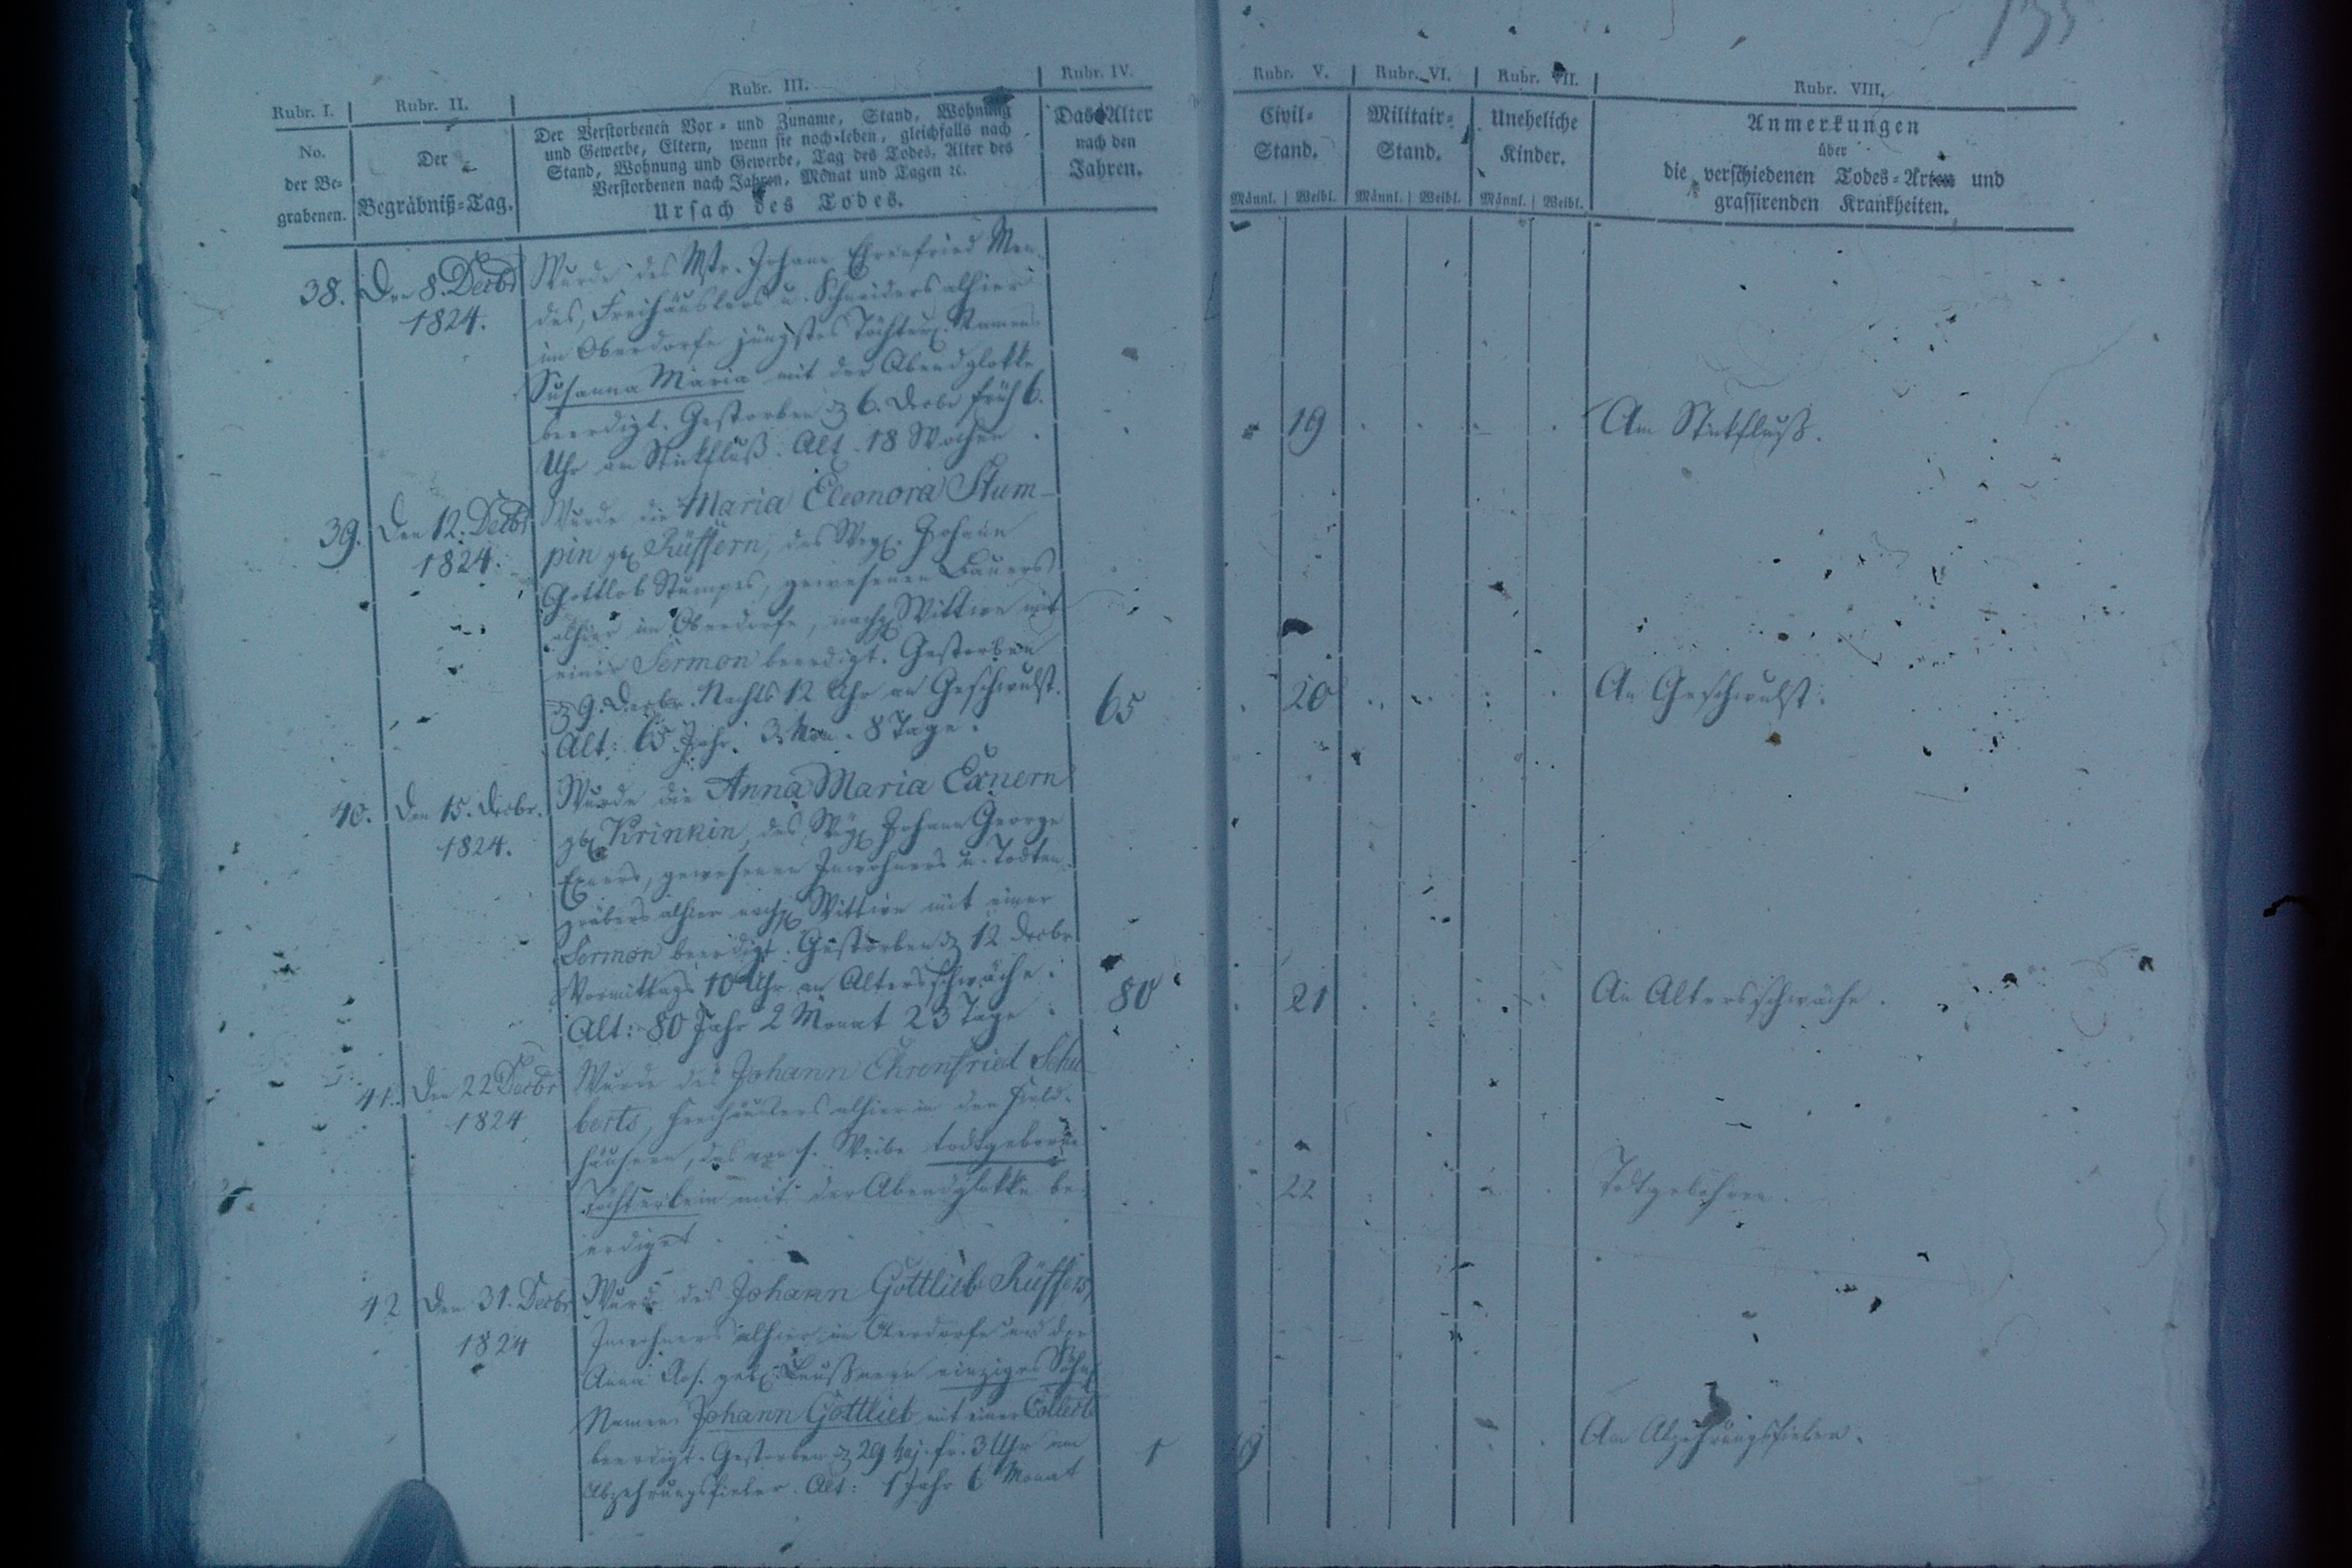 135
Rubr. I. Rubr. II. Rubr. III. Rubr. IV. Rubr. V. Rubr. VI. Rubr. VII. Rubr. VIII.
No.
der Be-
grabenen.
Der
Begräbniß-Tag.
Der Verstorbenen Vor- und Zuname, Stand, Wohnung
und Gewerbe, Eltern, wenn sie noch leben, gleichfalls nach
Stand, Wohnung und Gewerbe, Tag des Todes, Alter des
Verstorbenen nach Jahren, Monat und Tagen ꝛc.
Ursach des Todes.
Das Alter
nach den
Jahren.
Civil-
Stand.
Männl. Weibl.
Militair-
Stand.
Männl. Weibl.
Uneheliche
Kinder.
Männl. Weibl.
Anmerkungen
über
die verschiedenen Todes-Arten und
grassirenden Krankheiten.
38. Den 8. Decbr
1824.
Wurde des Mstr. Johann Ehrenfried Men-
des, Freihäuslers u. Schneiders alhier
im Oberdorfe jüngstes Töchterl. Namens
Susanna Maria mit der Abendglokke
beerdigt. Gestorben d. 6. Decbr früh 6.
Uhr an Stikfluß. Alt. 18 Wochen.
19 Am Stikfluß.
39. Den 12. Decbr
1824.
Wurde die Maria Eleonora Stum-
pin geb. Rüffern, des Johann
Gottlob Stumpes, gewesenen Bauers
alhier im Oberdorfe, nachgl. Wittwe mit
einer Sermon beerdigt. Gestorben
d. 9. Decbr. Nachts 12 Uhr an Geschwulst.
Alt: 65 Jahr. 3. Mon. 8 Tage.
65 20 An Geschwulst.
40. Den 15. Decbr.
1824.
Wurde die Anna Maria Exnern
geb. Krinkin, des Johann George
Exners, gewesenen Inwohners u. Todten-
gräbers alhier nachgl. Wittwe mit einer
Sermon beerdigt. Gestorben d. 12 Decbr
Vormittags 10 Uhr an Altersschwäche.
Alt: 80 Jahr 2 Monat 23 Tage
80 21 An Altersschwäche.
41. Den 22 Decbr
1824
Wurde des Johann Ehrenfried Schu-
berts, Freihäuslers alhier in den Feld-
häusern, das von s. Weibe todtgeborne
Töchterlein mit der Abendglokke be-
erdiget.
22 Todtgebohren.
42 Den 31. Decbr
1824
Wurde des Johann Gottlieb Rüffers,
Inwohners alhier im Oberdorfe und der
Anna Ros. geb. einziges Söhnl.
Namens Johann Gottlieb mit einer Collecte
beerdigt. Gestorben d. 29 huj. fr. 3 Uhr am
Abzehrungsfieber. Alt: 1 Jahr 6 Monat
1 19 Am Abzehrungsfieber.